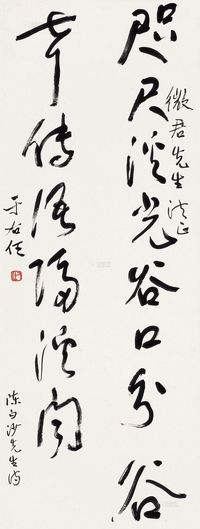 咫尺溪光谷口分谷
微君先生法正
中傳語隔溪聞
陳白沙先生詩
于右任